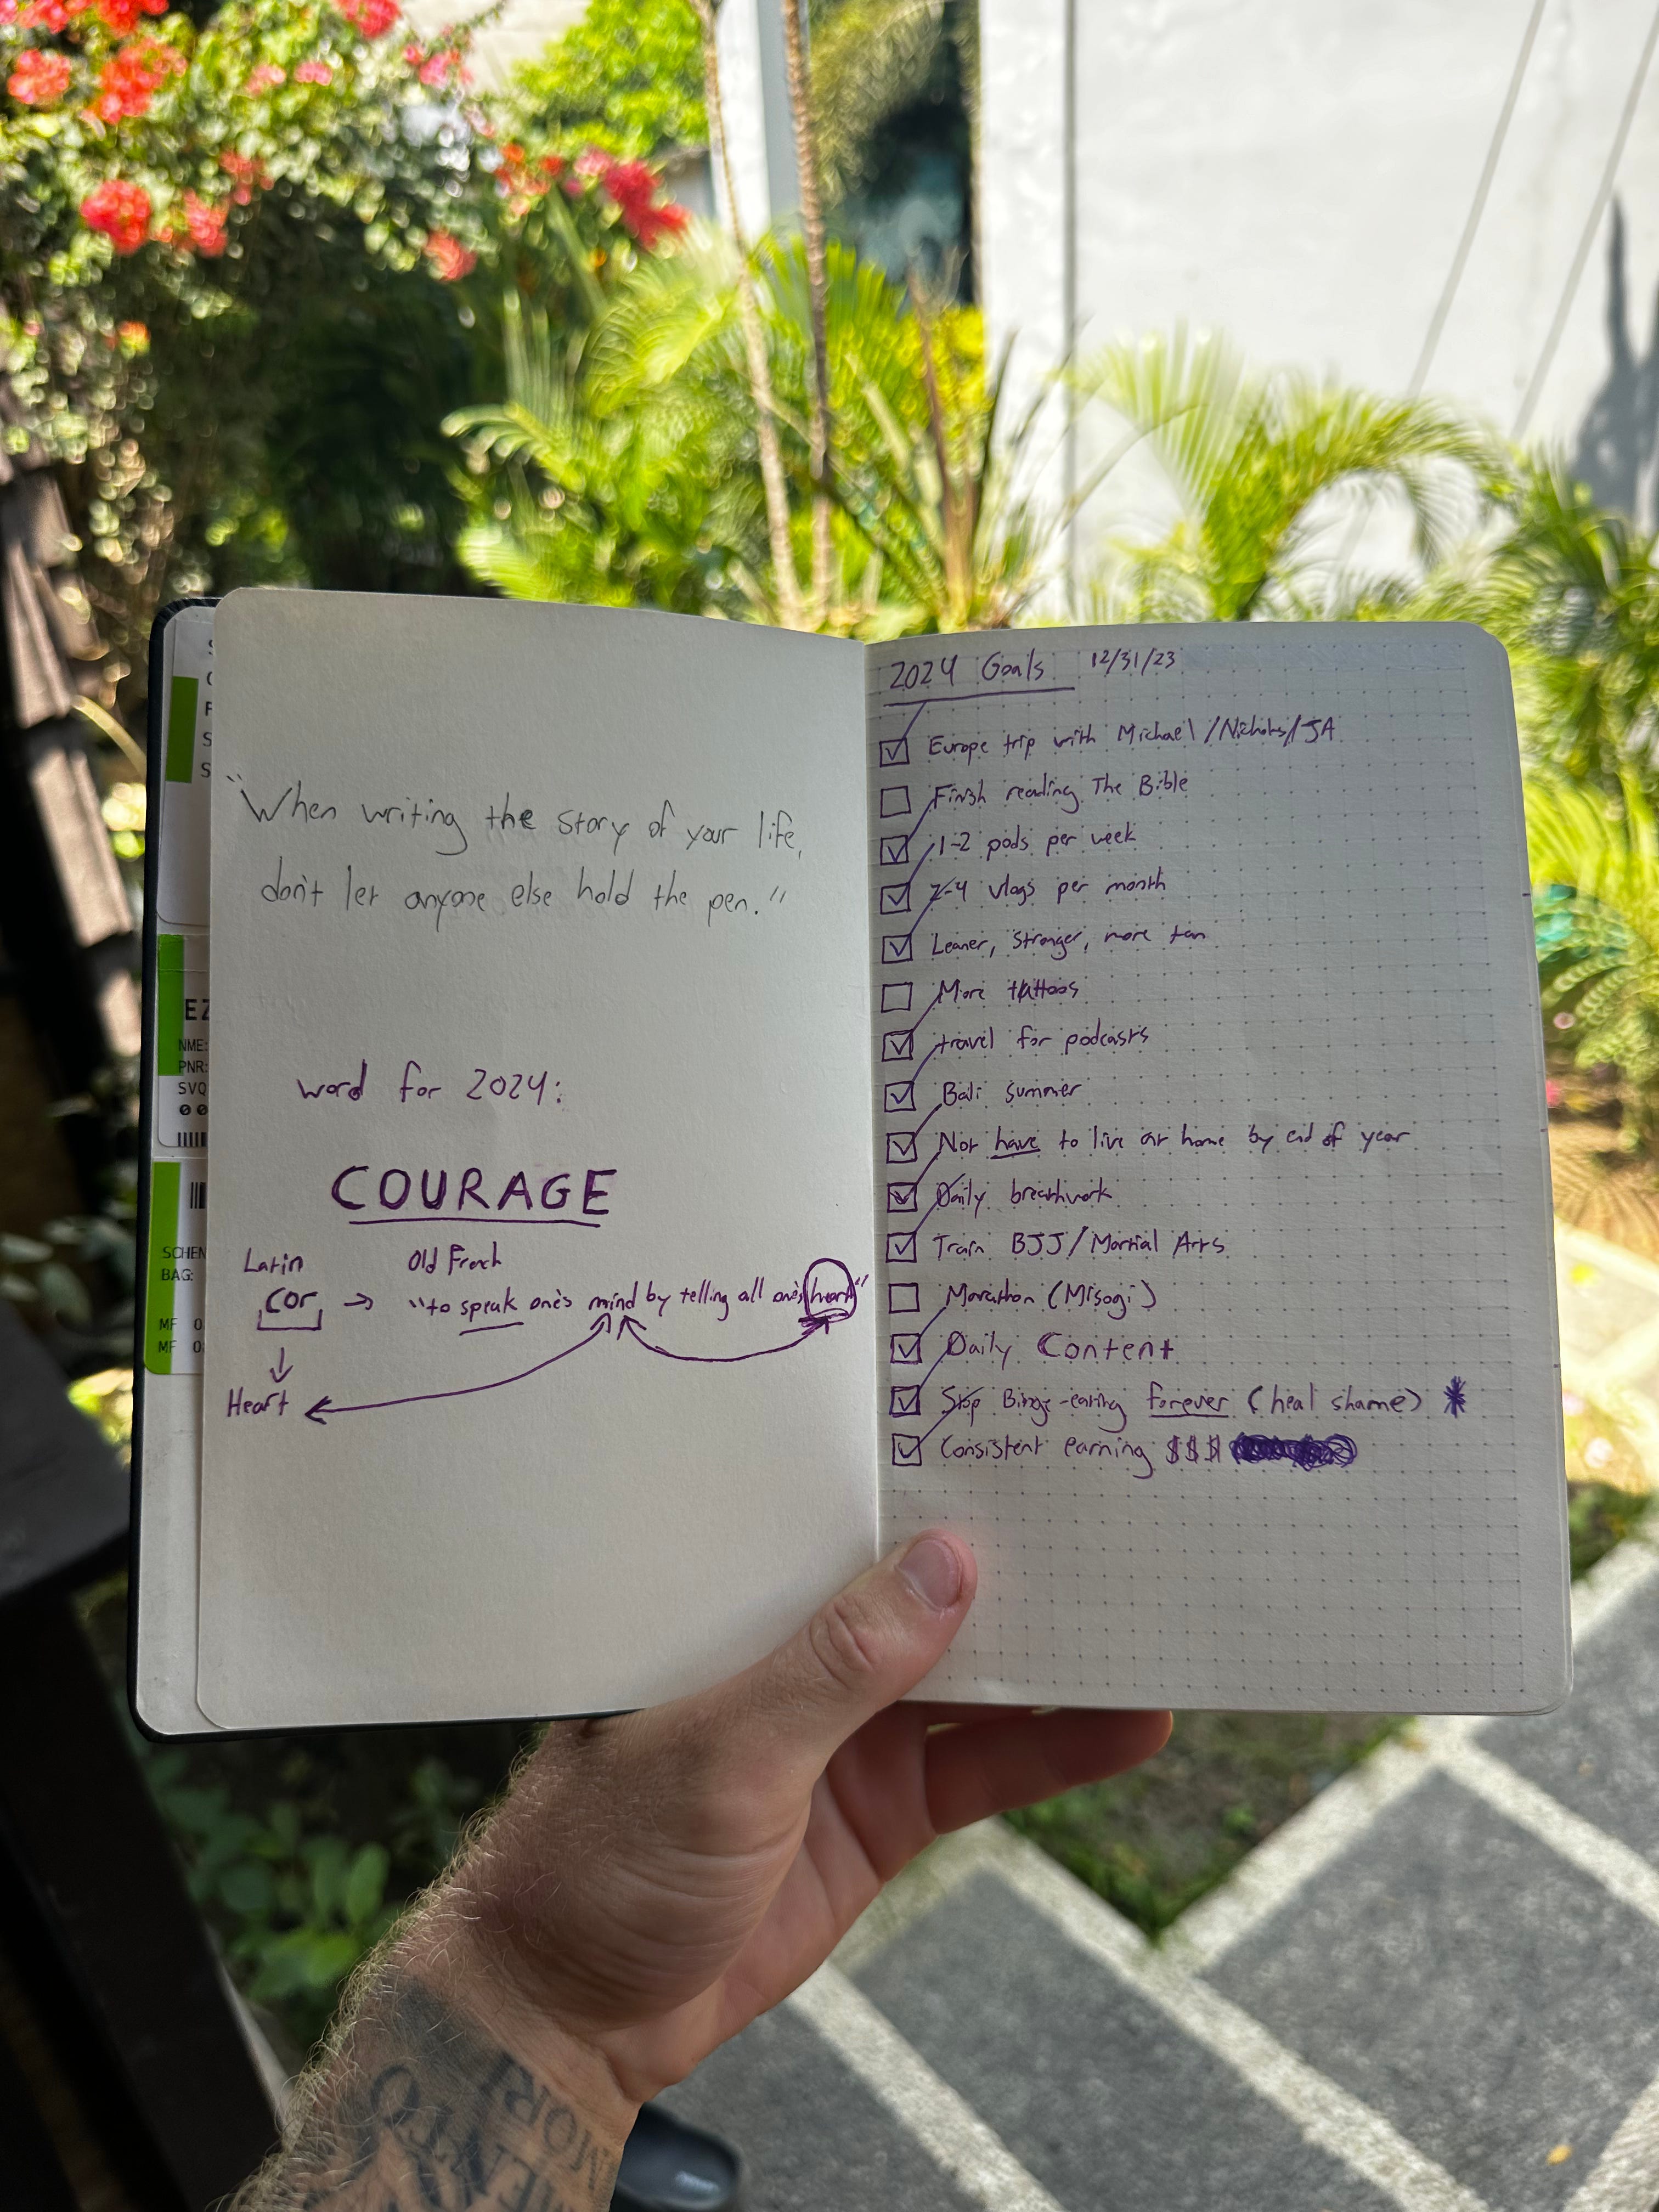 "When writing the story of your life,
don't let anyone else hold the pen."
word for 2024:
COURAGE
Latin
Old French
cor → "to speak one's mind by telling all one's heart"
↓
Heart
2024 Goals 12/31/23
☑ Europe trip with Michael/Nicholas/JA
☐ Finish reading The Bible
☑ 1-2 pods per week
☑ 2-4 vlogs per month
☑ Leaner, stronger, more tan
☐ More tattoos
☑ travel for podcasts
☑ Bali summer
☑ Not have to live at home by end of year
☑ Daily breathwork
☑ Train BJJ/Martial Arts
☐ Marathon (Misogi)
☑ Daily Content
☑ Stop Binge-eating forever (heal shame) *
☑ Consistent earning $$$
EZ
NME:
PNR:
SVQ
00
SCHEN
BAG:
MF 0
MF 0
MEMENTO
MORI